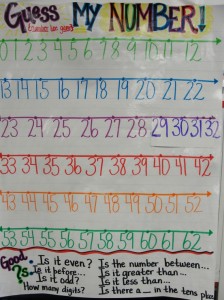 Guess MY NUMBER!
0 1 2 3 4 5 6 7 8 9 10 11 12
13 14 15 16 17 18 19 20 21 22
23 24 25 26 27 28 29 30 31 32
33 34 35 36 37 38 39 40 41 42
43 44 45 46 47 48 49 50 51 52
53 54 55 56 57 58 59 60 61 62
Good ?s:
Is it even?
Is it before...
Is it odd?
How many digits?
Is the number between...
Is it greater than...
Is it less than...
Is there a __ in the tens